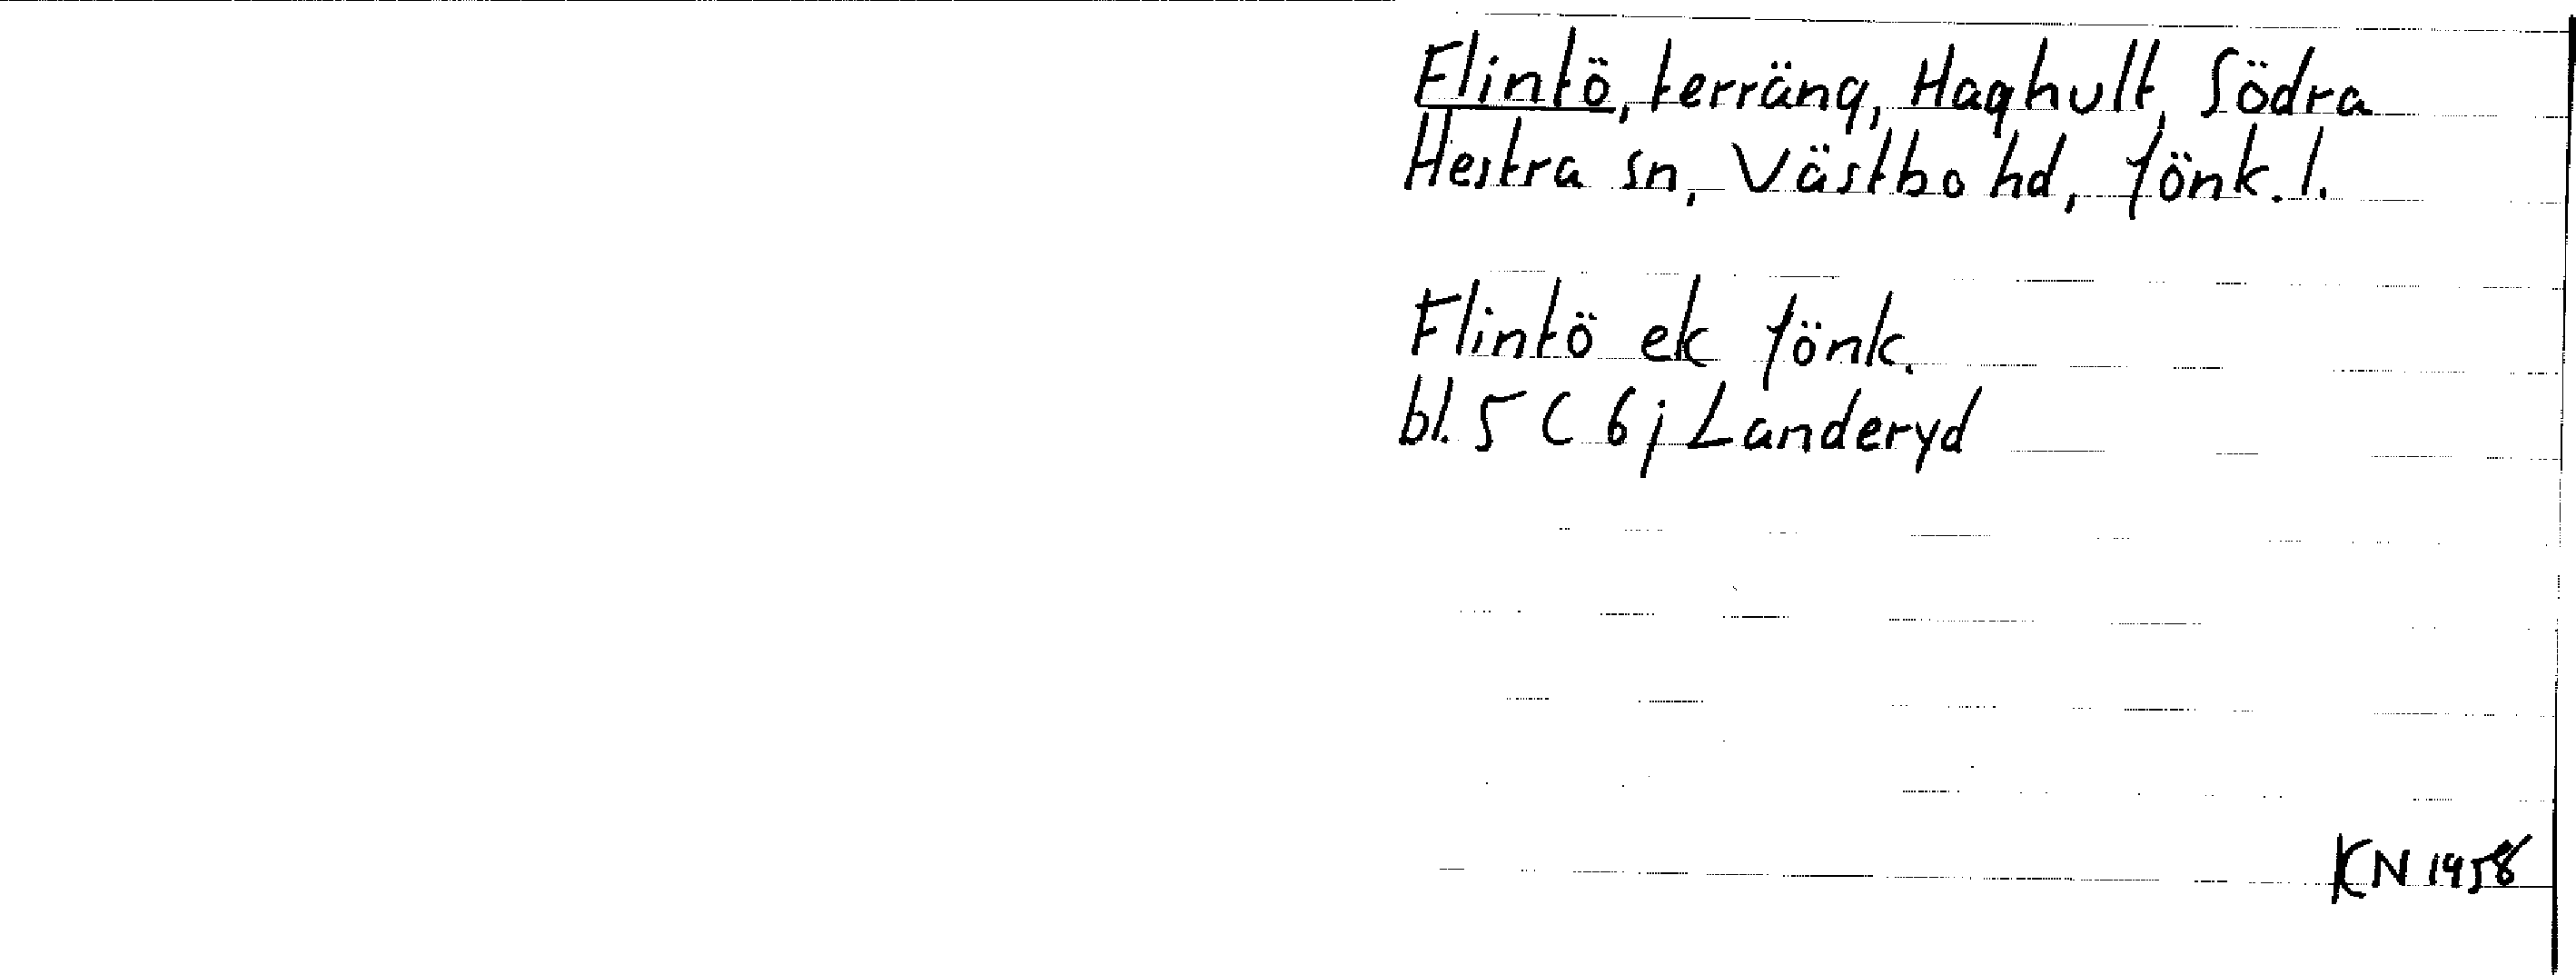 Flintö, terräng, Haghult, Södra
Hestra sn, Västbo hd, Jönk. l.
Flintö ek Jönk.
bl. 5 C 6 j Landeryd
KN 1958